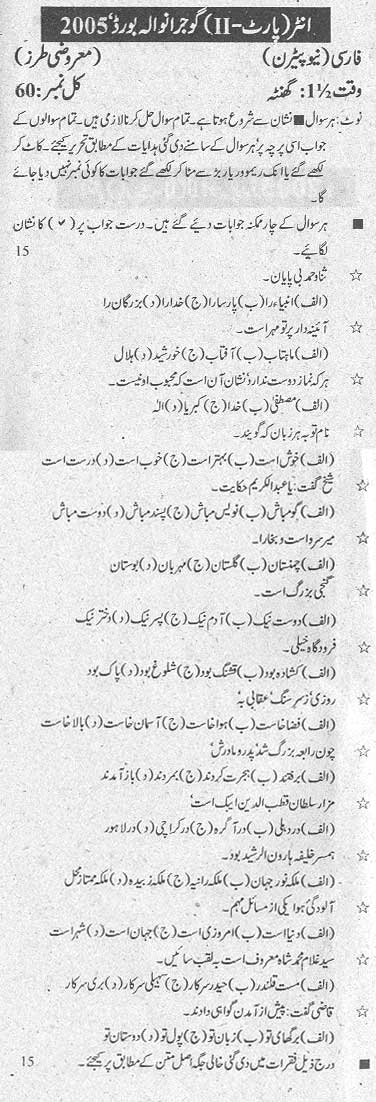 انٹر (پارٹ-II) گوجرانوالہ بورڈ، 2005
فارسی (نیو پیٹرن) (معروضی طرز)
وقت 1½: گھنٹہ کل نمبر: 60
نوٹ: ہر سوال ■ نشان سے شروع ہوتا ہے۔ تمام سوال حل کرنا لازمی ہیں۔ تمام سوالوں کے
جواب اسی پرچہ پر ہر سوال کے سامنے دی گئی ہدایات کے مطابق تحریر کیجئے۔ کاٹ کر
لکھے گئے یا انک ریموور یا ربڑ سے مٹا کر لکھے گئے جوابات کا کوئی نمبر نہیں دیا جائے
گا۔
■ ہر سوال کے چار ممکنہ جوابات دیئے گئے ہیں۔ درست جواب پر (✓) کا نشان
لگائیے۔ 15
☆ ثنا و حمد بی پایان۔
(الف) انبیاء را (ب) پارسا را (ج) خدا را (د) بزرگان را
☆ آئینہ دار پر تو مہر است۔
(الف) ماہتاب (ب) آفتاب (ج) خورشید (د) ہلال
☆ ہر کہ نماز دوست ندارد نشان آن است کہ محبوب او نیست۔
(الف) مصطفیٰ (ب) خدا (ج) کبریا (د) الہ
☆ نام تو بہ ہر زبان کہ گویند۔
(الف) خوش است (ب) بہتر است (ج) خوب است (د) درست است
☆ شیخ گفت: یا عبدالکریم حکایت۔
(الف) گو مباش (ب) نویس مباش (ج) پسند مباش (د) دوست مباش
☆ میر سرو است و بخارا۔
(الف) چمنستان (ب) گلستان (ج) مہربان (د) بوستان
☆ گنجی بزرگ است۔
(الف) دوست نیک (ب) آدم نیک (ج) پسر نیک (د) دختر نیک
☆ فرودگاہ خیلی۔
(الف) کشادہ بود (ب) قشنگ بود (ج) شلوغ بود (د) پاک بود
☆ روزی ز سر سنگ عقابی بہ
(الف) فضا خاست (ب) ہوا خاست (ج) آسمان خاست (د) بالا خاست
☆ چون رابعہ بزرگ شد، پدر و مادرش
(الف) برفتند (ب) ہجرت کردند (ج) بمردند (د) باز آمدند
☆ مزار سلطان قطب الدین ایبک است
(الف) در دہلی (ب) در آگرہ (ج) در کراچی (د) در لاہور
☆ ہمسر خلیفہ ہارون الرشید بود۔
(الف) ملکہ نور جہان (ب) ملکہ رانیہ (ج) ملکہ زبیدہ (د) ملکہ ممتاز محل
☆ آلودگی ہوا یکی از مسائل مہم۔
(الف) دنیا است (ب) امروزی است (ج) جہان است (د) شہر است
☆ سید غلام محمد شاہ معروف است بہ لقب سائیں۔
(الف) مست قلندر (ب) حیدر سرکار (ج) سہیلی سرکار (د) بری سرکار
☆ قاضی گفت: پیش از آمدن گواہی دادند۔
(الف) برگھای تو (ب) زبان تو (ج) پول تو (د) دوستان تو
■ درج ذیل فقرات میں دی گئی خالی جگہ اصل متن کے مطابق پر کیجئے۔ 15